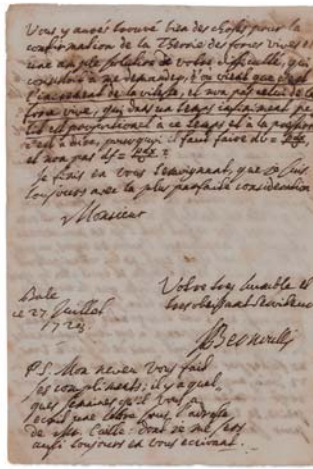 Vous y aurés trouvé bien des choses pour la
confirmation de la Theorie des forces vives et
une ample solution de votre difficulté, qui
consistoit a me demander, d'ou vient que c'est
l'increment de la vitesse, et non pas celui de la
force vive, qui dans un temps infiniment pe
tit est proportionel à ce temps et à la
c'est à dire, pourquoi il faut faire dv =
et non pas df =
Je finis en vous temoignant, que je suis
toujours avec la plus parfaite consideration
Monsieur
Votre tres humble et
Bale tres obeissant serviteur
ce 27 Juillet
JBernoulli
P.S. Mon neveu vous fait
ses compliments; il y a quel
ques semaines qu'il vous
ecrivit une lettre sous l'adresse
de Mr. dont je me sers
aussi toujours en vous ecrivant.